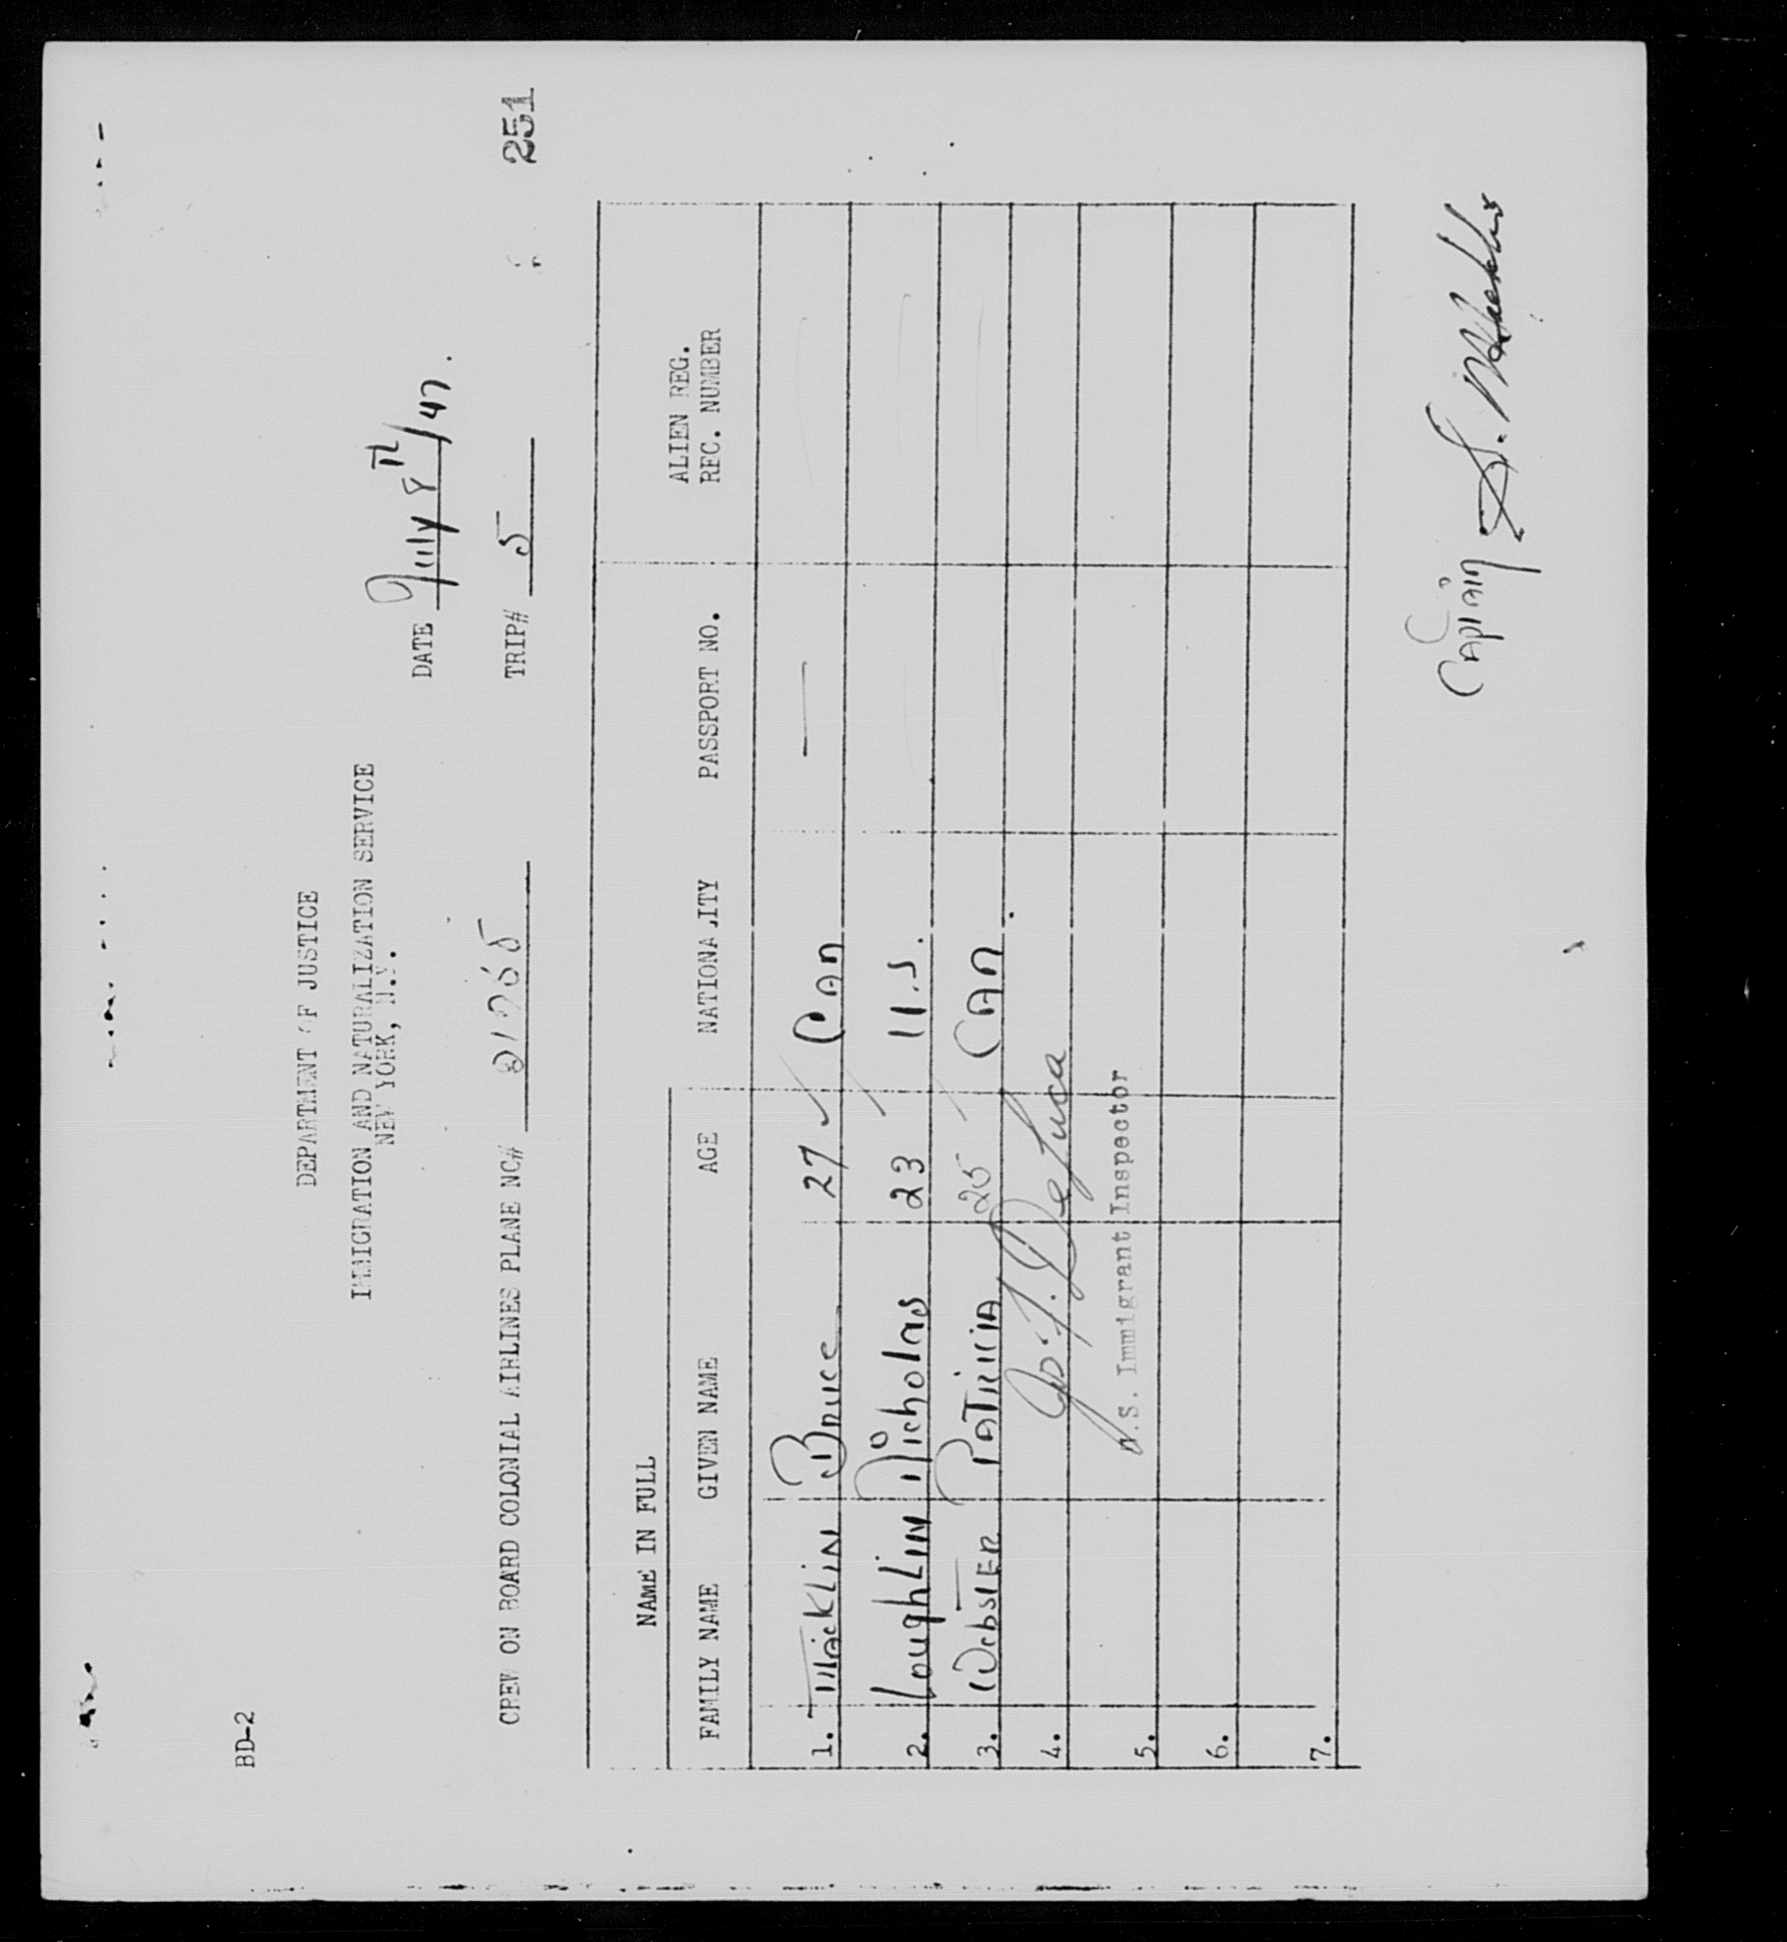 BD-2
DEPARTMENT OF JUSTICE
IMMIGRATION AND NATURALIZATION SERVICE
NEW YORK, N.Y.
DATE July 8th/47.
CREW ON BOARD COLONIAL AIRLINES PLANE NC# 21765 TRIP# 5
251
NAME IN FULL
FAMILY NAME GIVEN NAME AGE NATIONALITY PASSPORT NO. ALIEN REG. REC. NUMBER
1. MacKLiN Bruce 27 ✓ CAn —
2. LoughLiN Nicholas 23 U.S.
3. WebSTER PATRiCiA 25 CAn
4.
5.
6.
7.
Jos. J. DeLuca
U.S. Immigrant Inspector
CApTAin